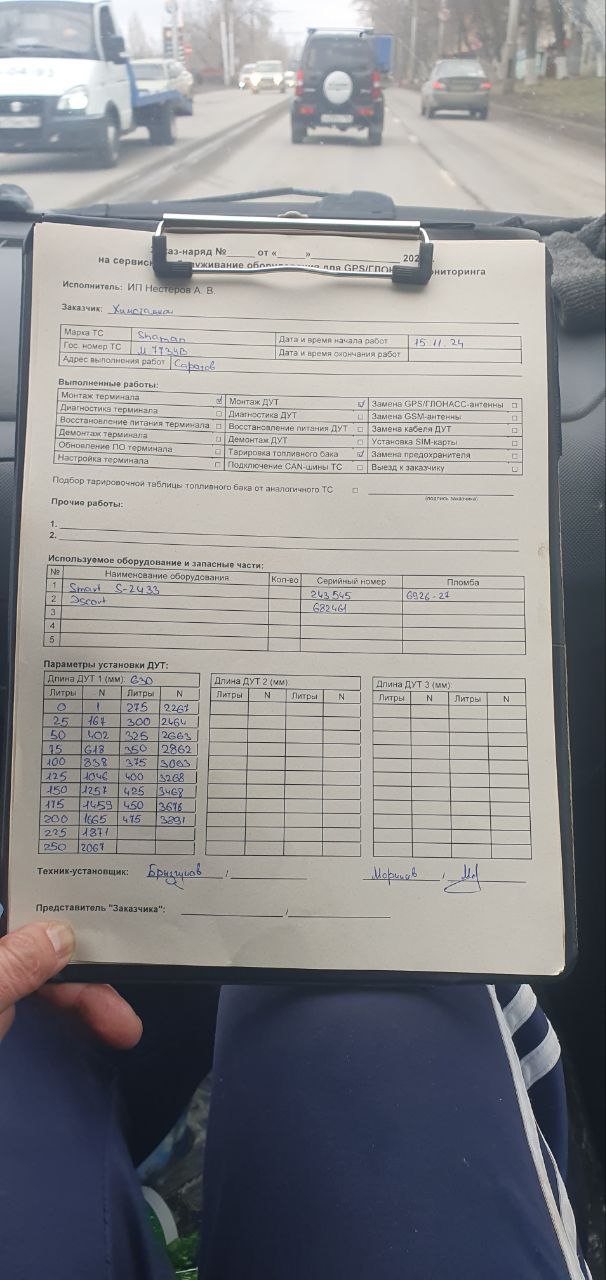 аз-наряд №_____ от «_____»_______________ 202
на сервисн уживание обор для GPS/ГЛОН ониторинга
Исполнитель: ИП Нестеров А. В.
Заказчик:
Марка ТС Shaman Дата и время начала работ 15.11.24
Гос. номер ТС Дата и время окончания работ
Адрес выполнения работ Саратов
Выполненные работы:
Монтаж терминала ☑ Монтаж ДУТ ☑ Замена GPS/ГЛОНАСС-антенны □
Диагностика терминала □ Диагностика ДУТ □ Замена GSM-антенны □
Восстановление питания терминала □ Восстановление питания ДУТ □ Замена кабеля ДУТ □
Демонтаж терминала □ Демонтаж ДУТ □ Установка SIM-карты □
Обновление ПО терминала □ Тарировка топливного бака ☑ Замена предохранителя □
Настройка терминала □ Подключение CAN-шины ТС □ Выезд к заказчику □
Подбор тарировочной таблицы топливного бака от аналогичного ТС □
(подпись заказчика)
Прочие работы:
1.
2.
Используемое оборудование и запасные части:
№ Наименование оборудования Кол-во Серийный номер Пломба
1 Smart S-2433 243545 6926-27
2 Эскорт 682461
3
4
5
Параметры установки ДУТ:
Длина ДУТ 1 (мм): 630 Длина ДУТ 2 (мм): Длина ДУТ 3 (мм):
Литры N Литры N Литры N Литры N Литры N Литры N
0 1 275 2267
25 167 300 2464
50 402 325 2663
75 618 350 2862
100 838 375 3063
125 1046 400 3268
150 1257 425 3468
175 1459 450 3676
200 1665 475 3891
225 1871
250 2067
Техник-установщик: /
Представитель "Заказчика": /